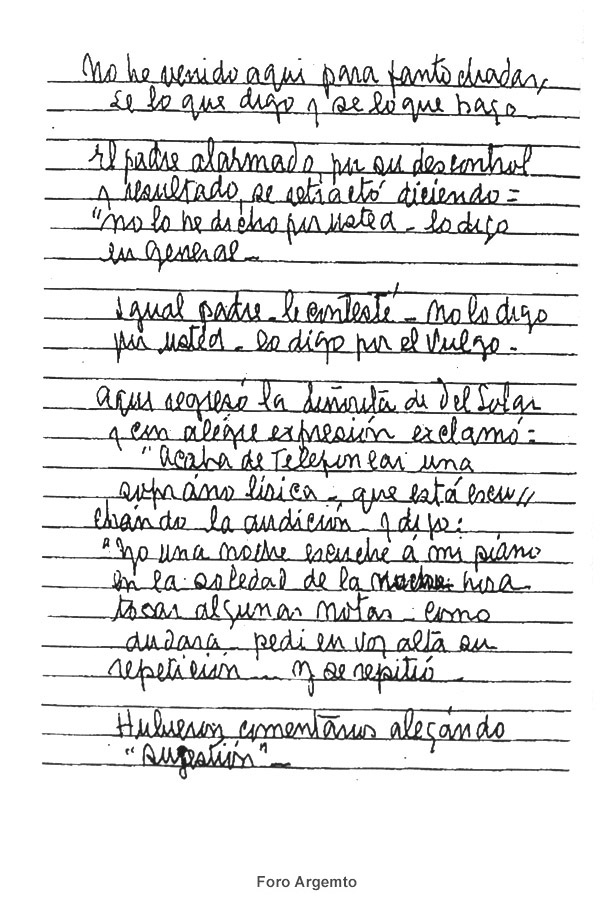 No he venido aqui para fantochadas,
se lo que digo y se lo que hago
El padre alarmado por su descontrol
y resultado, se retractó diciendo =
"No lo he dicho por usted - lo digo
en General -
Igual padre - le contesté - No lo digo
por usted - lo digo por el Vulgo -
Aqui regresó la Señorita de Del Solar
y con alegre expresión exclamó =
"Acaba de Telefonear una
sopráno lírica - que está escu//
chándo la audición y dijo:
"Yo una noche escuché á mi piáno
en la soledad de la noche hora
tocar algunas notas - como
dudara - pedi en voz alta su
repetición - y se repitió -
Hubieron comentários alegándo
"Sugestión" -
Foro Argemto